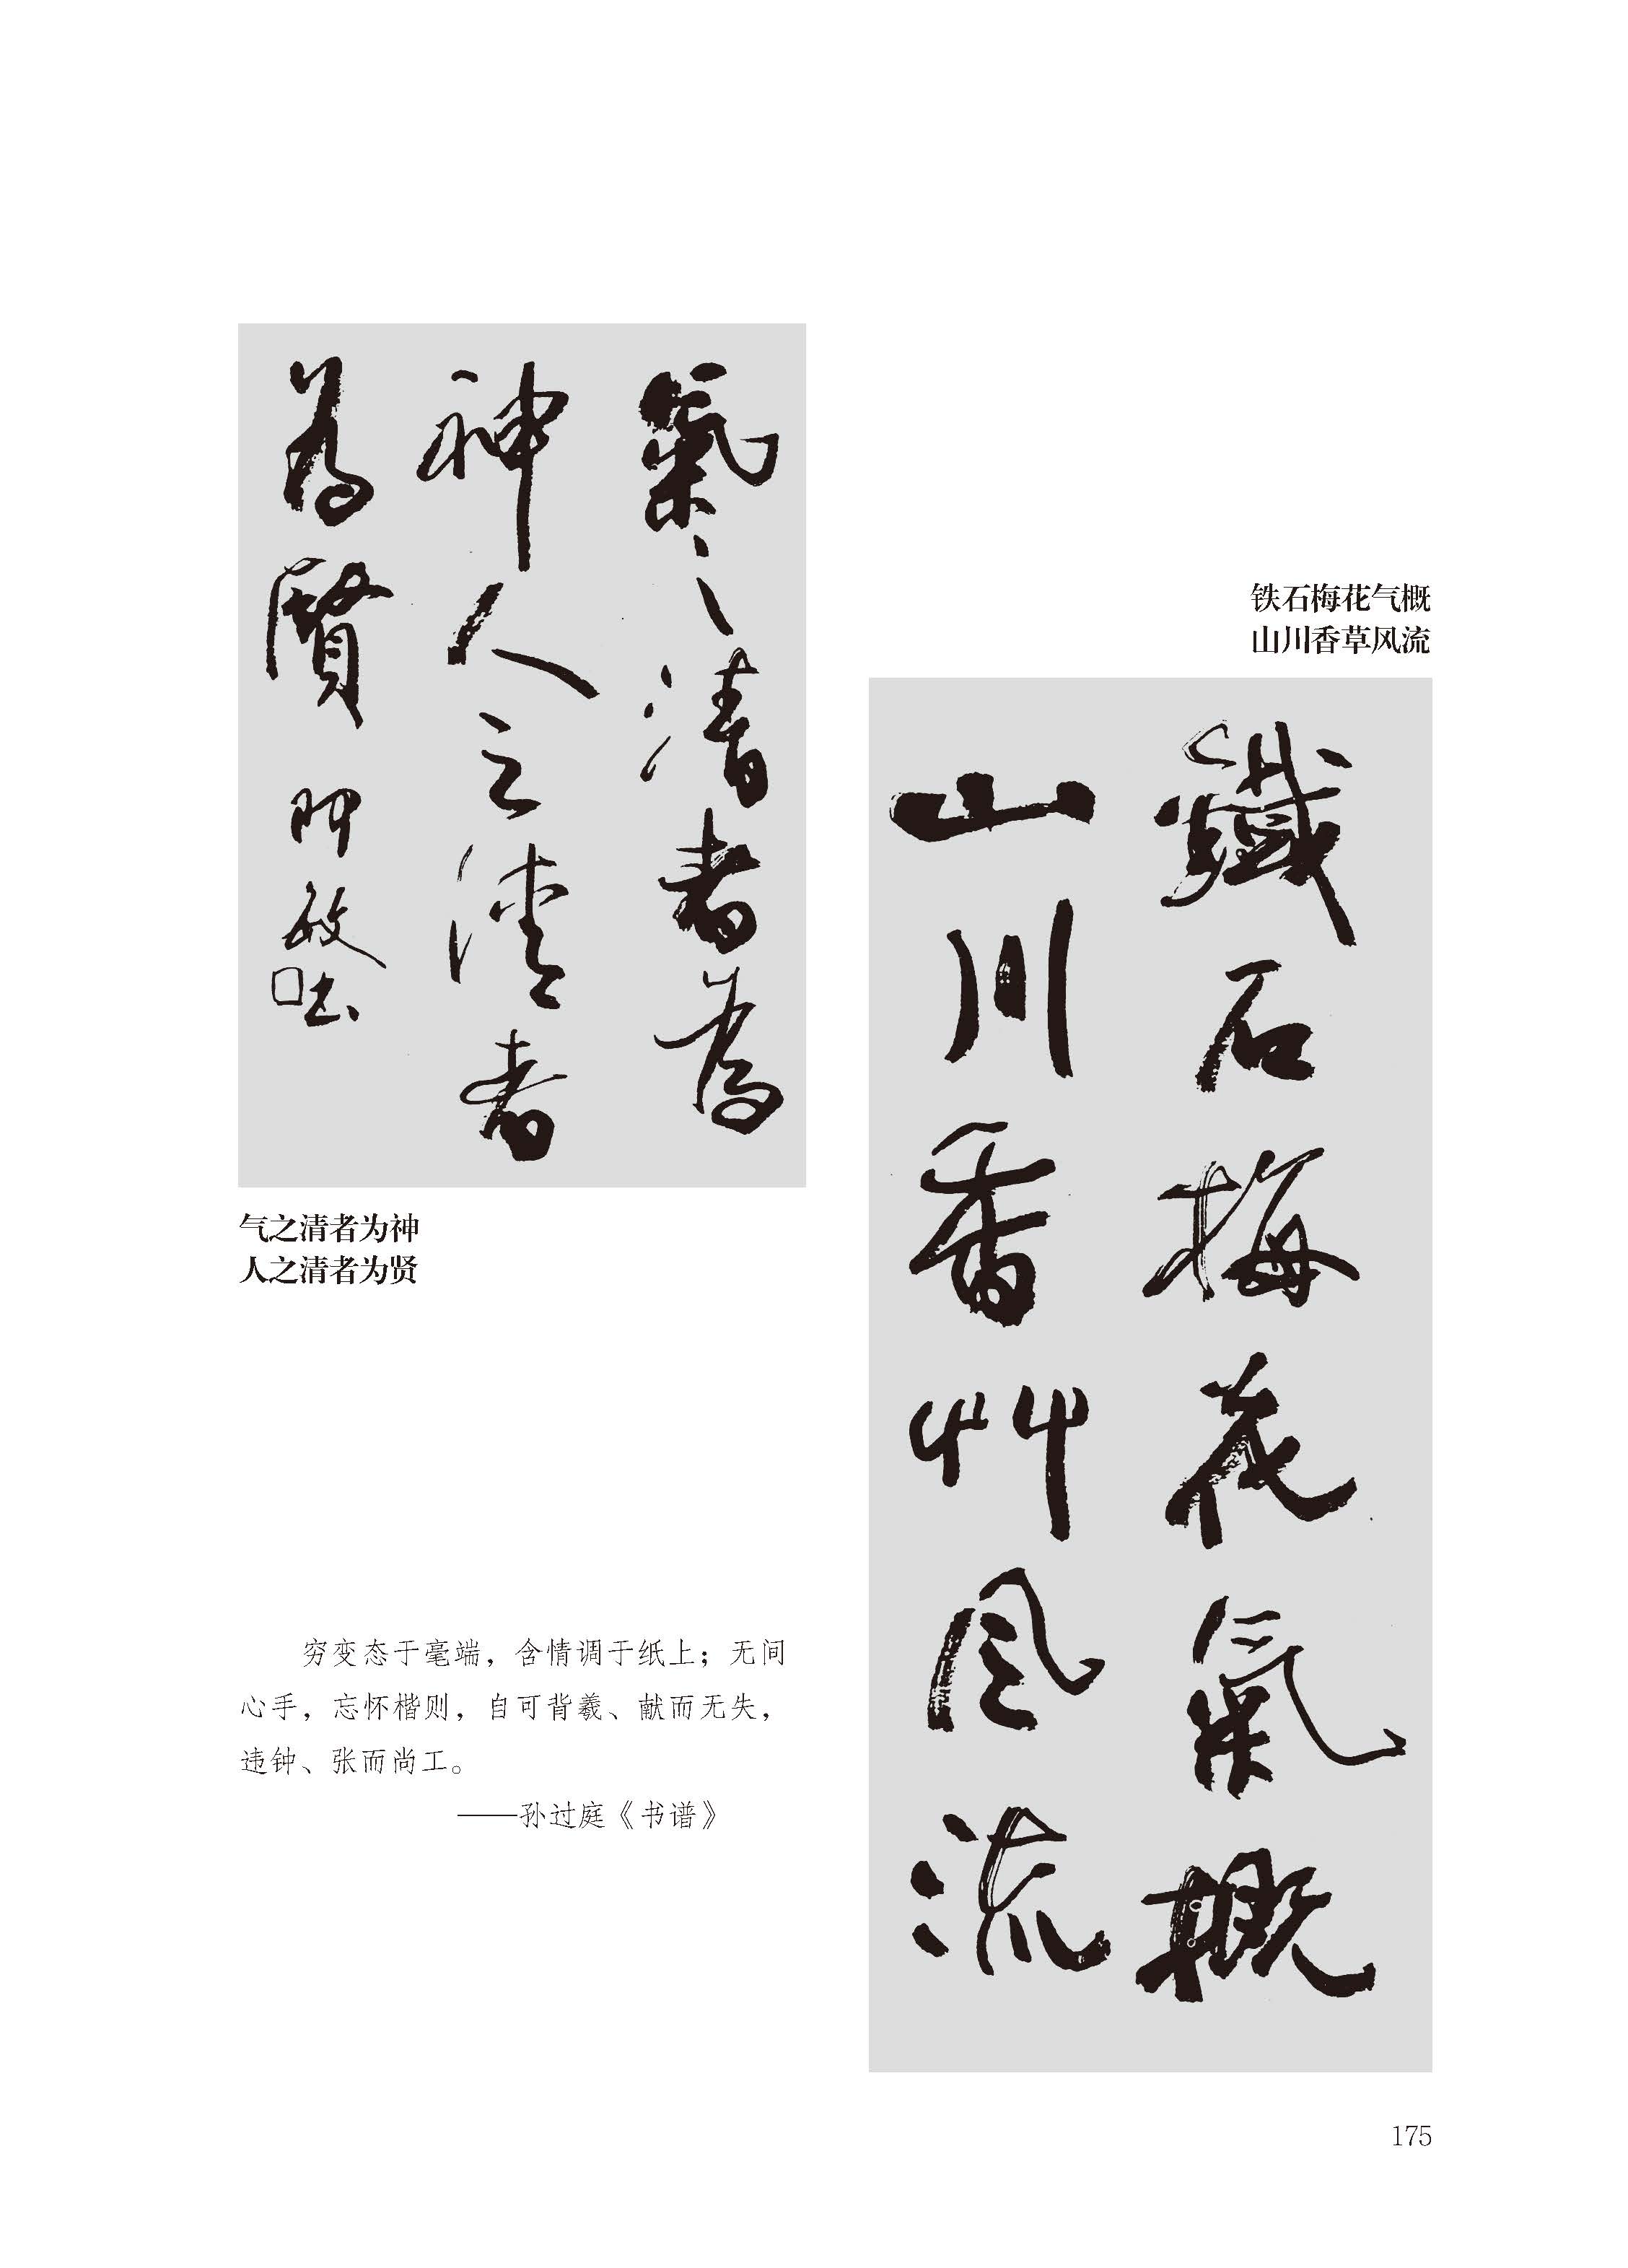 氣之清者為
神人之清者
為賢
气之清者为神
人之清者为贤
铁石梅花气概
山川香草风流
鐵石梅花氣概
山川香艸风流
穷变态于毫端，含情调于纸上；无间
心手，忘怀楷则，自可背羲、献而无失，
违钟、张而尚工。
——孙过庭《书谱》
175